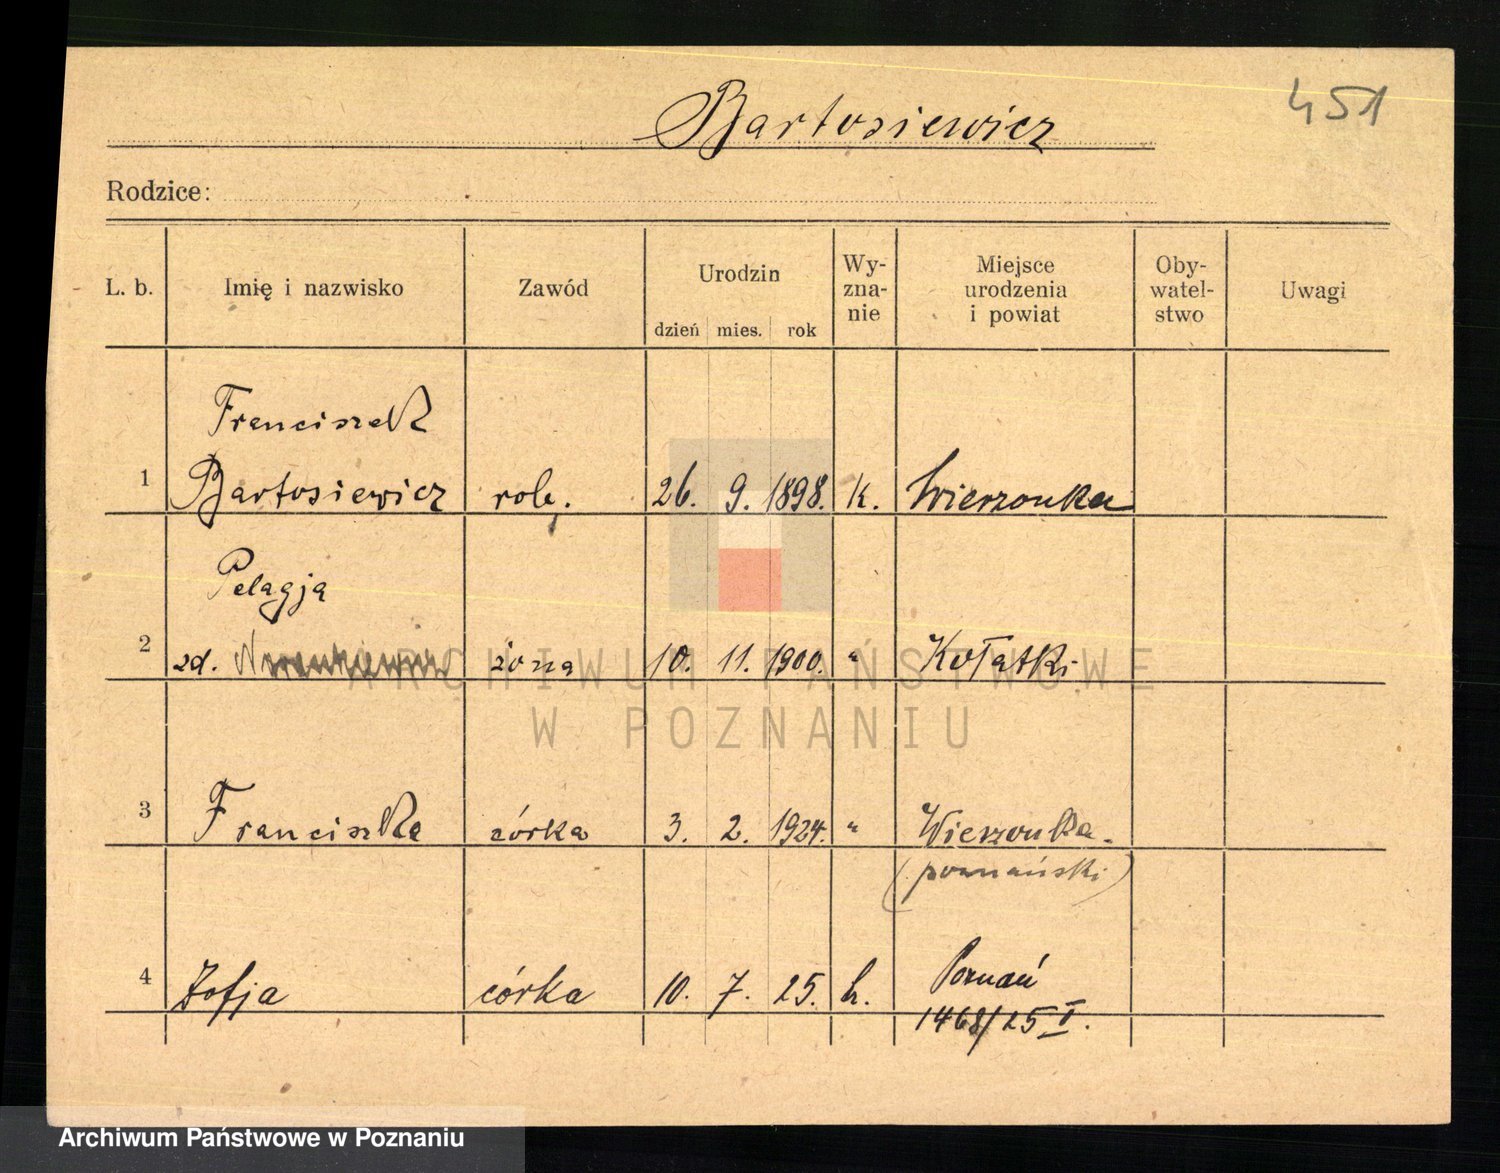 Bartosiewicz
451
Rodzice:
L. b. Imię i nazwisko Zawód Urodzin dzień mies. rok Wy-zna-nie Miejsce urodzenia i powiat Oby-watel-stwo Uwagi
Franciszek
1 Bartosiewicz rob. 26. 9. 1898. k. Wierzonka
Pelagja
2 zd. żona 10. 11. 1900. " Kołatki
3 Franciszka córka 3. 2. 1924. " Wierzonka.
(poznański)
Poznań
4 Zofja córka 10. 7. 25. k.
1468/25 I.
ARCHIWUM PAŃSTWOWE
W POZNANIU
Archiwum Państwowe w Poznaniu